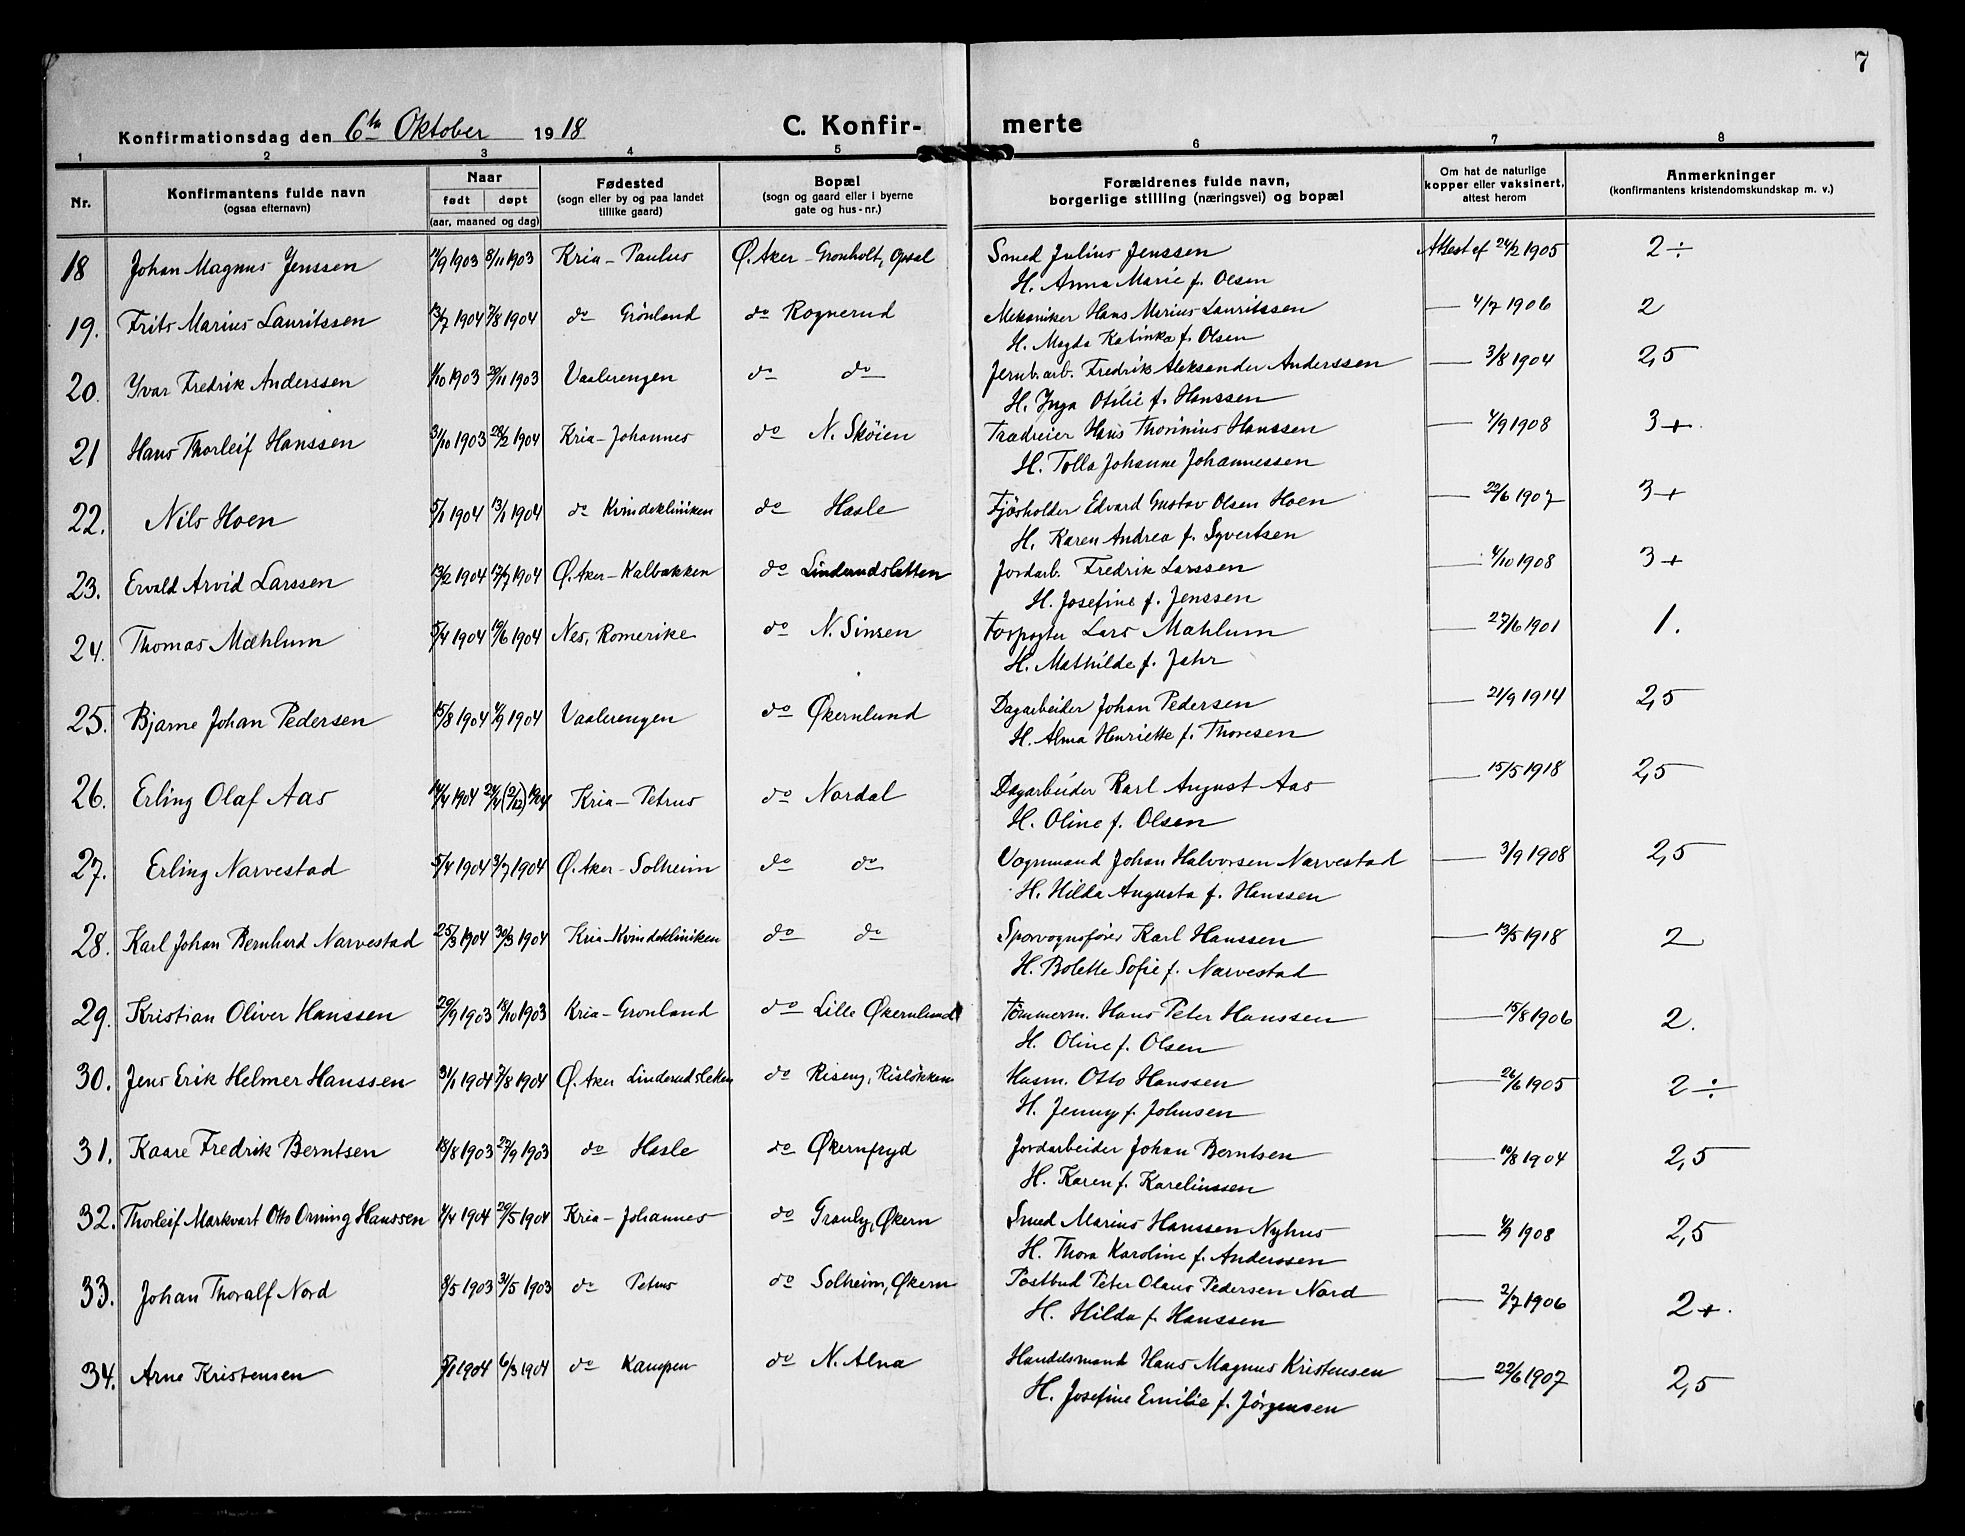 7
Konfirmationsdag den 6te Oktober 1918 C. Konfir- merte
1 2 3 4 5 6 7 8
Nr. Konfirmantens fulde navn (ogsaa efternavn) Naar født døpt (aar, maaned og dag) Fødested (sogn eller by og paa landet tillike gaard) Bopæl (sogn og gaard eller i byerne gate og hus-nr.) Forældrenes fulde navn, borgerlige stilling (næringsvei) og bopæl Om hat de naturlige kopper eller vaksinert, attest herom Anmerkninger (konfirmantens kristendomskundskap m. v.)
18 Johan Magnus Jenssen 1903 8/11 1903 Kria - Paulus Ø. Aker - Gronholt, Opsal Smed Julius Jenssen Attest af 24/2 1905 2÷
H. Anna Marie f. Olsen
19. Frits Marius Lauritssen 13/7 1904 7/8 1904 do Grønland do Rognerud Mekaniker Hans Marius Lauritssen — 4/7 1906 2
H. Magda Katinka f. Olsen
20. Yvar Fredrik Anderssen 1/10 1903 29/11 1903 Vaalerengen do do Jernb.arb. Fredrik Aleksander Anderssen — 3/8 1904 2,5
H. Inga Otilie f. Hanssen
21 Hans Thorleif Hanssen 31/10 1903 28/2 1904 Kria - Johannes do N. Skøien Trædreier Hans Thorinius Hanssen — 4/9 1908 3+.
H. Tolla Johanne Johannessen
22. Nils Hoen 5/1 1904 13/1 1904 do Kvindekliniken do Hasle Fjøsholder Edvard Gustav Olsen Hoen — 22/6 1907 3+
H. Karen Andrea f. Syvertsen
23. Ervald Arvid Larssen 13/2 1904 17/7 1904 Ø. Aker - Kalbakken do Linderudsletten Jordarb. Fredrik Larssen — 4/10 1908 3+
H. Josefine f. Jenssen
24. Thomas Mæhlum 5/4 1904 19/6 1904 Nes, Romerike do N. Sinsen Forpagter Lars Mæhlum — 27/6 1901 1.
H. Mathilde f. Jahr
25. Bjarne Johan Pedersen 15/8 1904 4/9 1904 Vaalerengen do Økernlund Dagarbeider Johan Pedersen — 21/9 1914 2,5
H. Alma Henriette f. Thoresen
26. Erling Olaf Aas 14/4 1904 24/4 (2/12) 1904 Kria - Petrus do Nordal Dagarbeider Karl August Aas — 15/5 1918 2,5
H. Oline f. Olsen
27. Erling Narvestad 5/4 1904 3/7 1904 Ø. Aker - Solheim do do Vognmand Johan Halvorsen Narvestad — 3/9 1908 2,5
H. Hilda Augusta f. Hanssen
28. Karl Johan Bernhard Narvestad 25/3 1904 30/3 1904 Kria - Kvindekliniken do do Sporvognsfører Karl Hanssen — 13/5 1918 2
H. Bolette Sofie f. Narvestad
29. Kristian Oliver Hanssen 29/9 1903 18/10 1903 Kria - Gronland do Lille Økernlund Tømmerm. Hans Peter Hanssen — 15/8 1906 2.
H. Oline f. Olsen
30. Jens Erik Helmer Hanssen 31/1 1904 7/8 1904 Ø. Aker Linderudsletten do Riseng, Risløkken Husm. Otto Hanssen — 26/6 1905 2÷
H. Jenny f. Johnsen
31. Kaare Fredrik Berntsen 18/8 1903 27/9 1903 do Hasle do Økernfryd Jordarbeider Johan Berntsen — 10/8 1904 2,5
H. Karen f. Kareliussen
32. Thorleif Markvart Otto Orning Hanssen 1904 29/5 1904 Kria - Johannes do Granly, Økern Smed Marius Hanssen Nyhus — 1908 2,5
H. Thora Karoline f. Anderssen
33. Johan Thoralf Nord 8/5 1903 31/5 1903 do Petrus do Solheim, Økern Postbud Peter Olaus Pedersen Nord — 2/7 1906 2+.
H. Hilda f. Hanssen
34. Arne Kristensen 5/1 1904 6/3 1904 do Kampen do N. Alna Handelsmand Hans Magnus Kristensen — 22/6 1907 2,5
H. Josefine Emilie f. Jørgensen